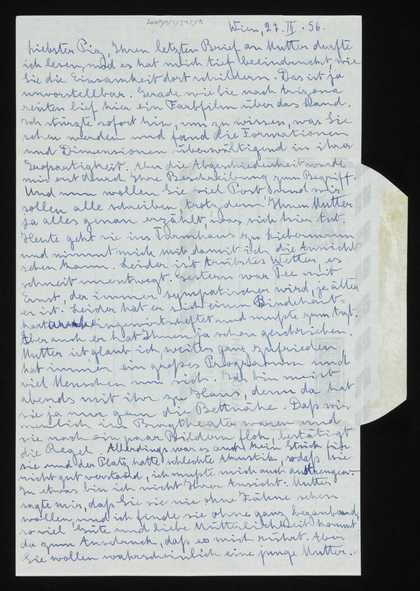 Wien, 27. II. 56.
Liebster Piz, Ihren letzten Brief an Mutter durfte
ich lesen, und es hat mich tief beeindruckt, wie
Sie die Einsamkeit dort schildern. Das ist ja
unvorstellbar. Gerade wie Sie nach Arizona
reisten lief hier ein Farbfilm über das Land.
Ich stürzte sofort hin, um zu wissen, was Sie
sehen werden und fand die Formationen
und Dimensionen überwältigend in ihrer
Großartigkeit. Aber die Abgeschiedenheit wurde
mir erst durch Ihre Beschreibung zum Begriff.
Und nun wollen Sie viel Post und wir
sollen alle schreiben trotzdem Ihnen Mutter
ja alles genau erzählt, was sich hier tut.
Heute geht sie ins Turmhaus zu
und nimmt mich mit damit ich die Aussicht
sehen kann. Leider ist trübstes Wetter, es
schneit unentwegt. Gestern war Tee mit
Ernst, der immer sympathischer wird, je älter
er ist. Leider hat er sich einen Bindehaut-
und mußte zum
Aber auch er hat Ihnen ja schon geschrieben.
Mutter ist glaub ich weiter ganz zufrieden
hat immer ein großes Programm und
viel Menschen um sich. Ich bin meist
abends mit ihr zu Haus, denn da hat
sie ja nur gern die Bettnähe. Daß wir
neulich im Burgtheater waren und
sie nach ein paar Bildern floh, bestätigt
die Regel. Allerdings war es auch
und der Platz hatte schlechte Akustik, sodaß sie
nicht gut verstand, ich mußte mich auch anstrengen.
In etwas bin ich nicht Ihrer Ansicht. Mutter
sagte mir, daß Sie sie nie ohne Zähne sehen
wollen, und ich finde sie ohne ganz bezaubernd,
so viel Güte und liebe Mütterlichkeit kommt
da zum Ausdruck, daß es mich rührt. Aber
Sie wollen wahrscheinlich eine junge Mutter.